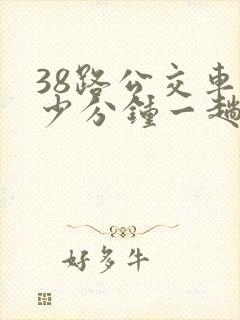 38路公交车
少分钟一趟
好多牛